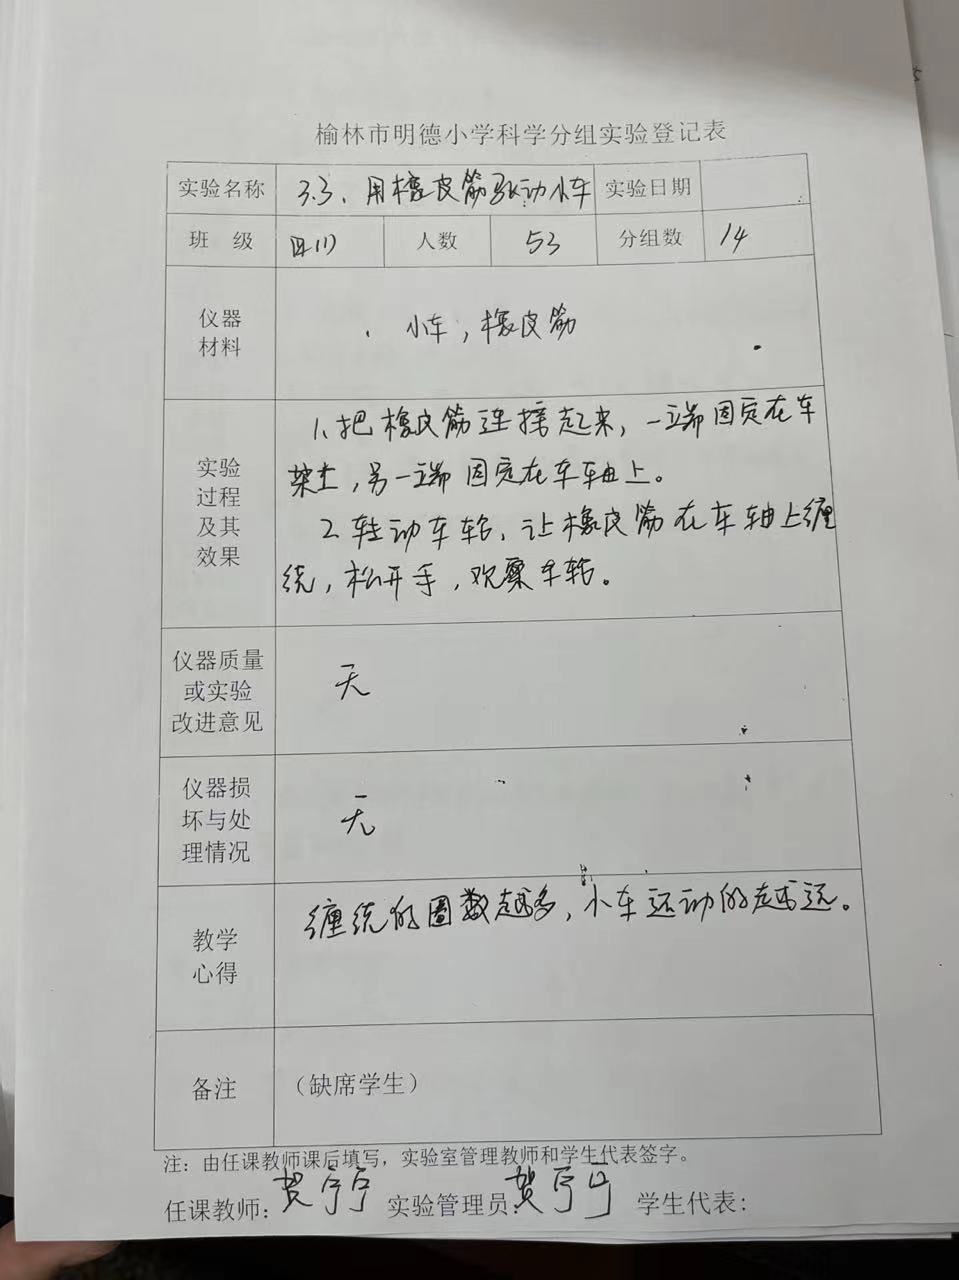 榆林市明德小学科学分组实验登记表
实验名称 3.3、用橡皮筋驱动小车 实验日期
班 级 四(1) 人数 53 分组数 14
仪器
材料
小车,橡皮筋
实验
过程
及其
效果
1、把橡皮筋连接起来,一端固定在车
架上,另一端固定在车轴上。
2、转动车轮,让橡皮筋在车轴上缠
绕,松开手,观察车轮。
仪器质量
或实验
改进意见
无
仪器损
坏与处
理情况
无
教学
心得
缠绕的圈数越多,小车运动的越远。
备注 (缺席学生)
注:由任课教师课后填写,实验室管理教师和学生代表签字。
任课教师:贺宁宁 实验管理员:贺宁宁 学生代表: